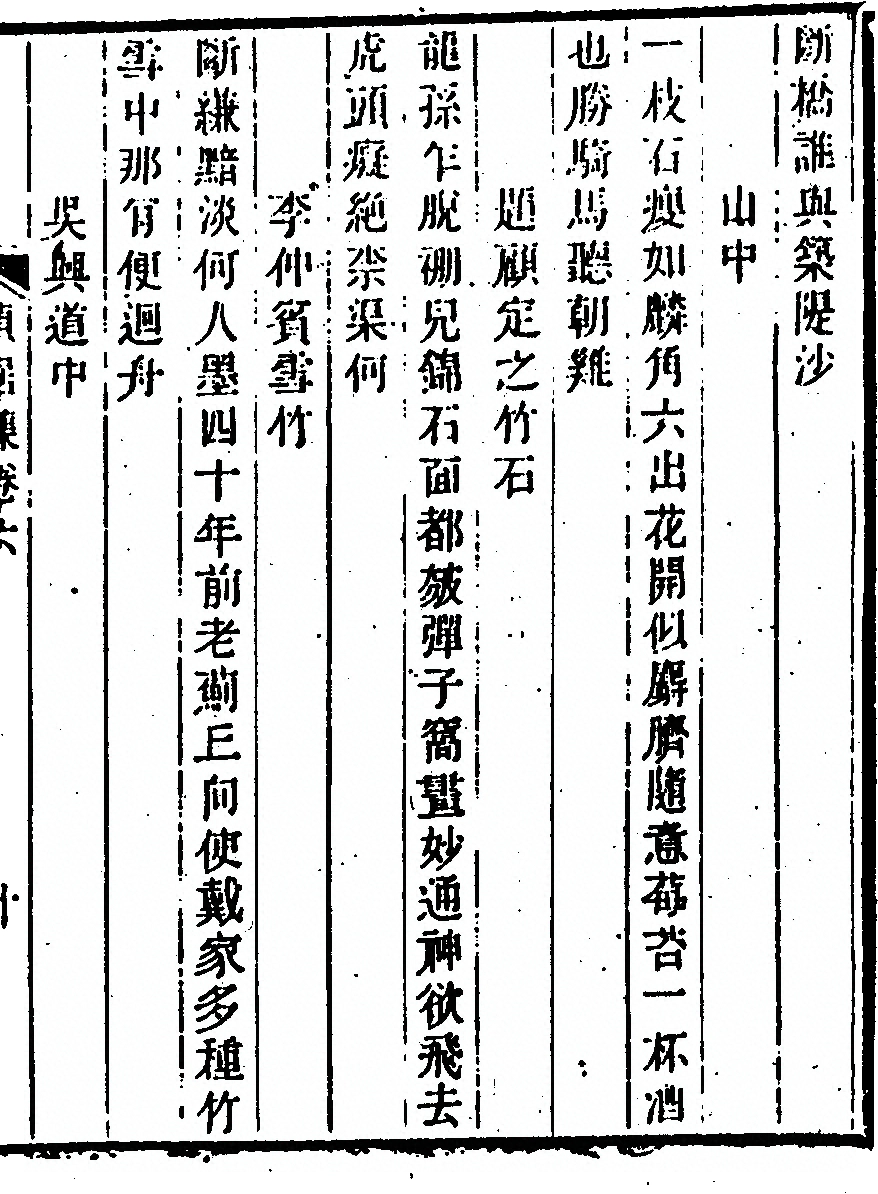 斷橋誰與築隄沙
山中
一枝石瘦如麟角六出花開似麝臍隨意莓苔一杯酒
也勝騎馬聽朝雞
題顧定之竹石
龍孫乍脫裯兒錦石面都皴彈子窩畫妙通神欲飛去
虎頭癡絶柰渠何
李仲賓雪竹
斷縑黯淡何人墨四十年前老薊丘向使戴家多種竹
雪中那肯便迴舟
吳興道中
貞居集卷六
十